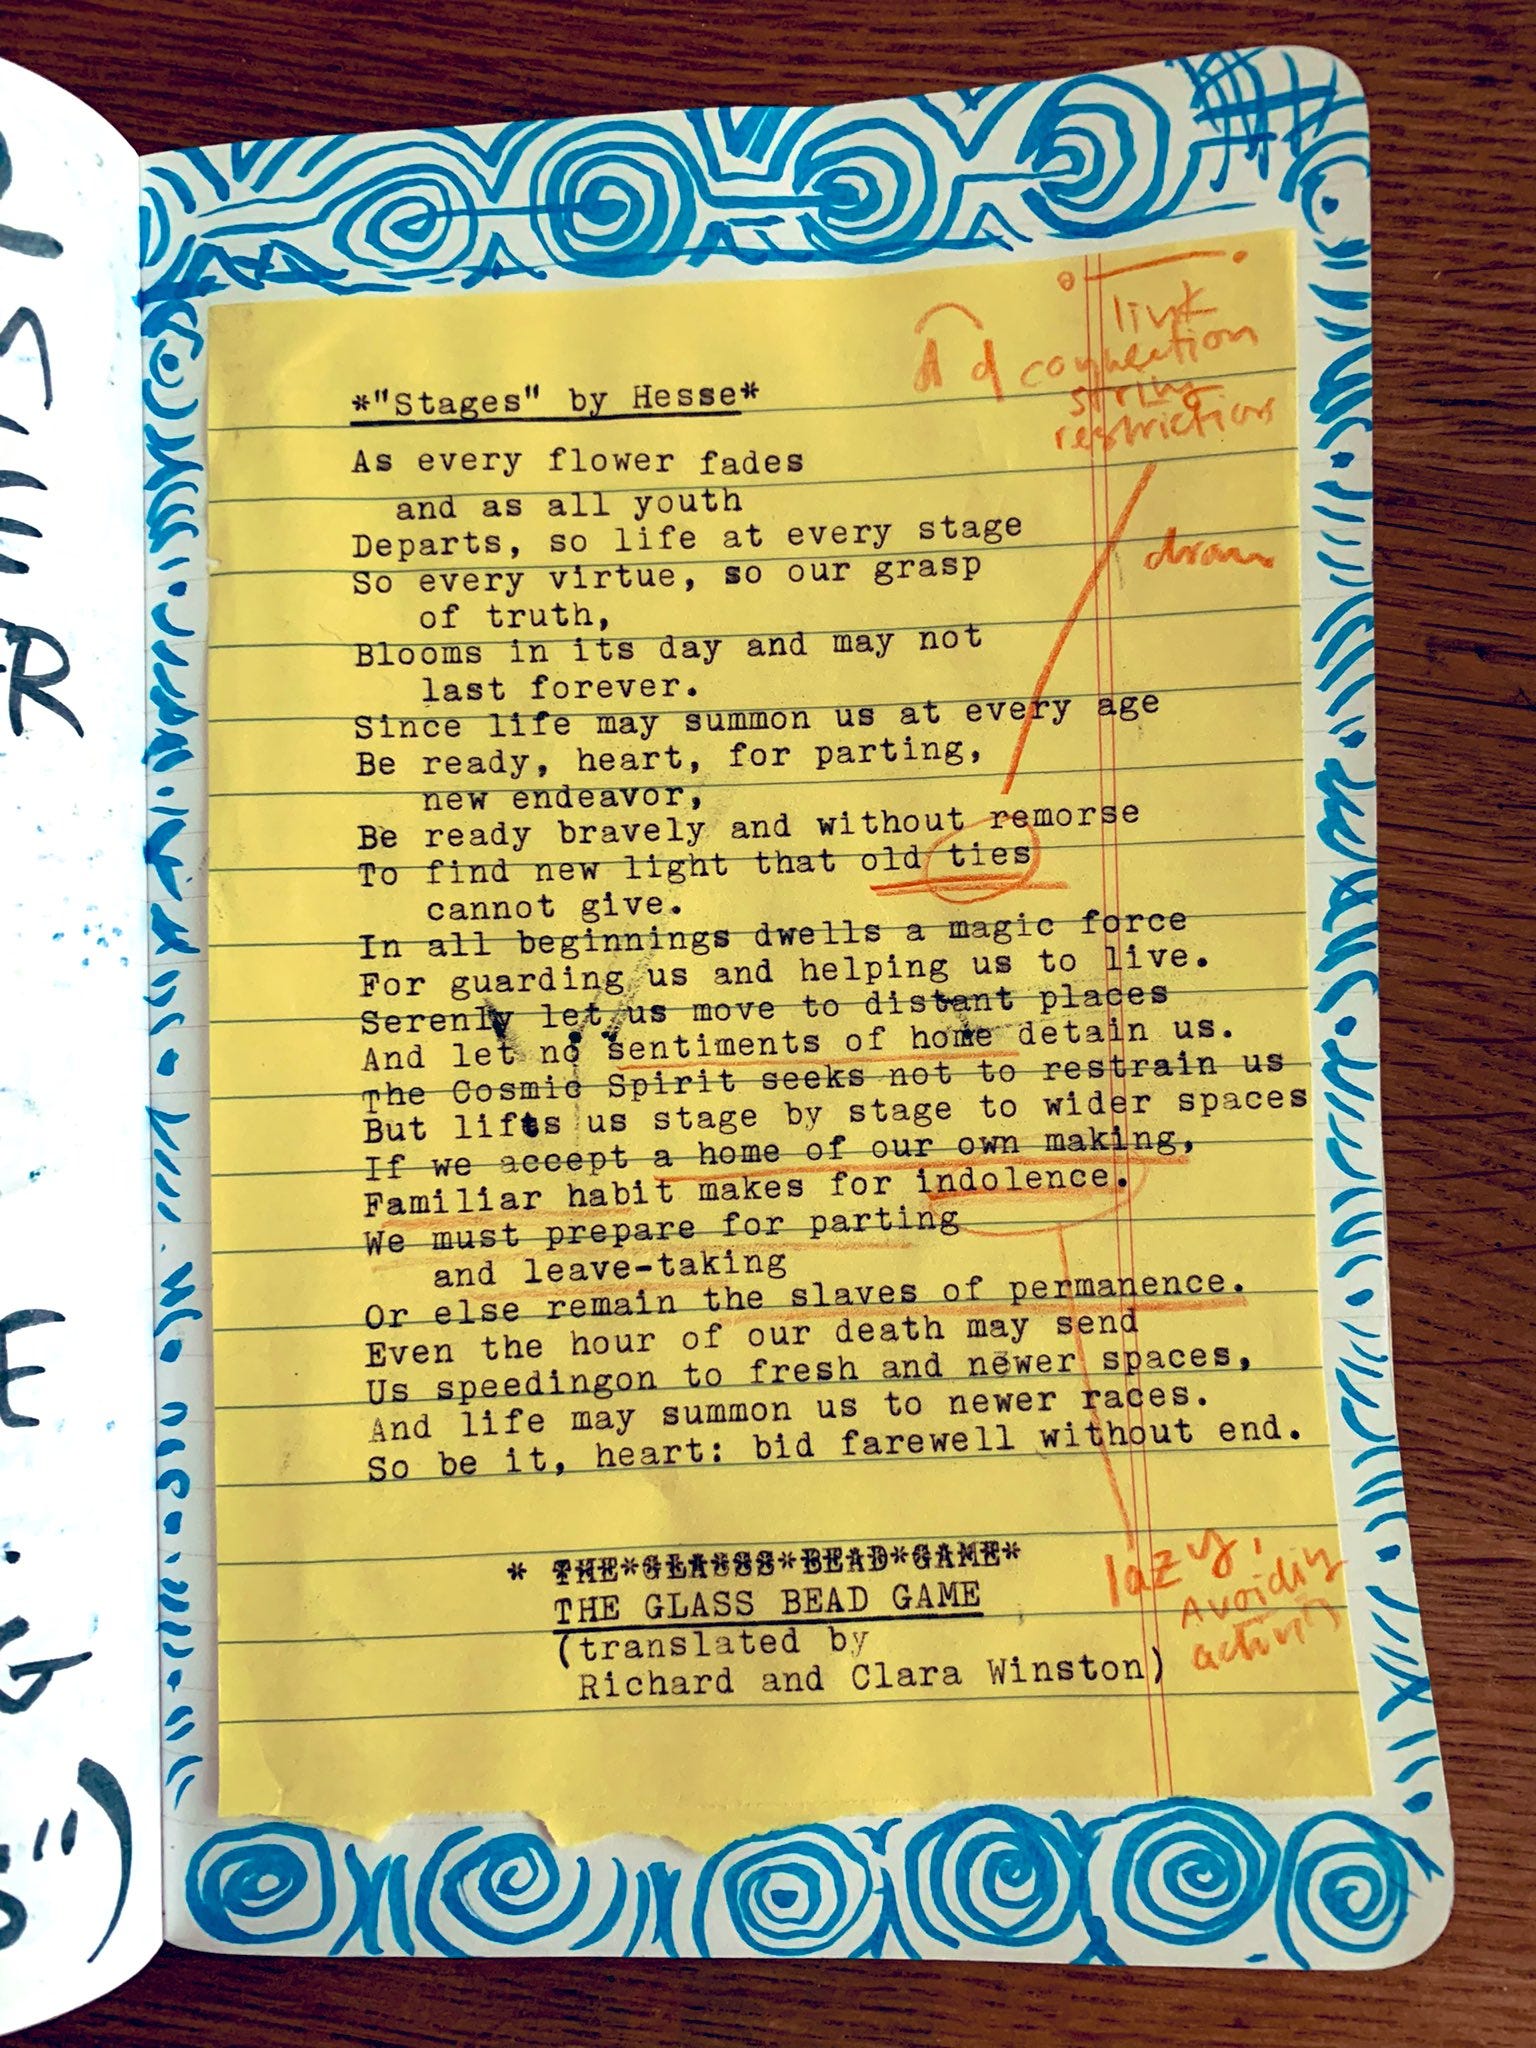 *"Stages" by Hesse*
As every flower fades
and as all youth
Departs, so life at every stage
So every virtue, so our grasp
of truth,
Blooms in its day and may not
last forever.
Since life may summon us at every age
Be ready, heart, for parting,
new endeavor,
Be ready bravely and without remorse
To find new light that old ties
cannot give.
In all beginnings dwells a magic force
For guarding us and helping us to live.
Serenly let us move to distant places
And let no sentiments of home detain us.
The Cosmic Spirit seeks not to restrain us
But lifts us stage by stage to wider spaces
If we accept a home of our own making,
Familiar habit makes for indolence.
We must prepare for parting
and leave-taking
Or else remain the slaves of permanence.
Even the hour of our death may send
Us speedingon to fresh and newer spaces,
And life may summon us to newer races.
So be it, heart: bid farewell without end.
* THE*GLASSS*BEAD*GAME*
THE GLASS BEAD GAME
(translated by
Richard and Clara Winston)
link
connection
string
restriction
lazy,
Avoiding
activity
R
E
G